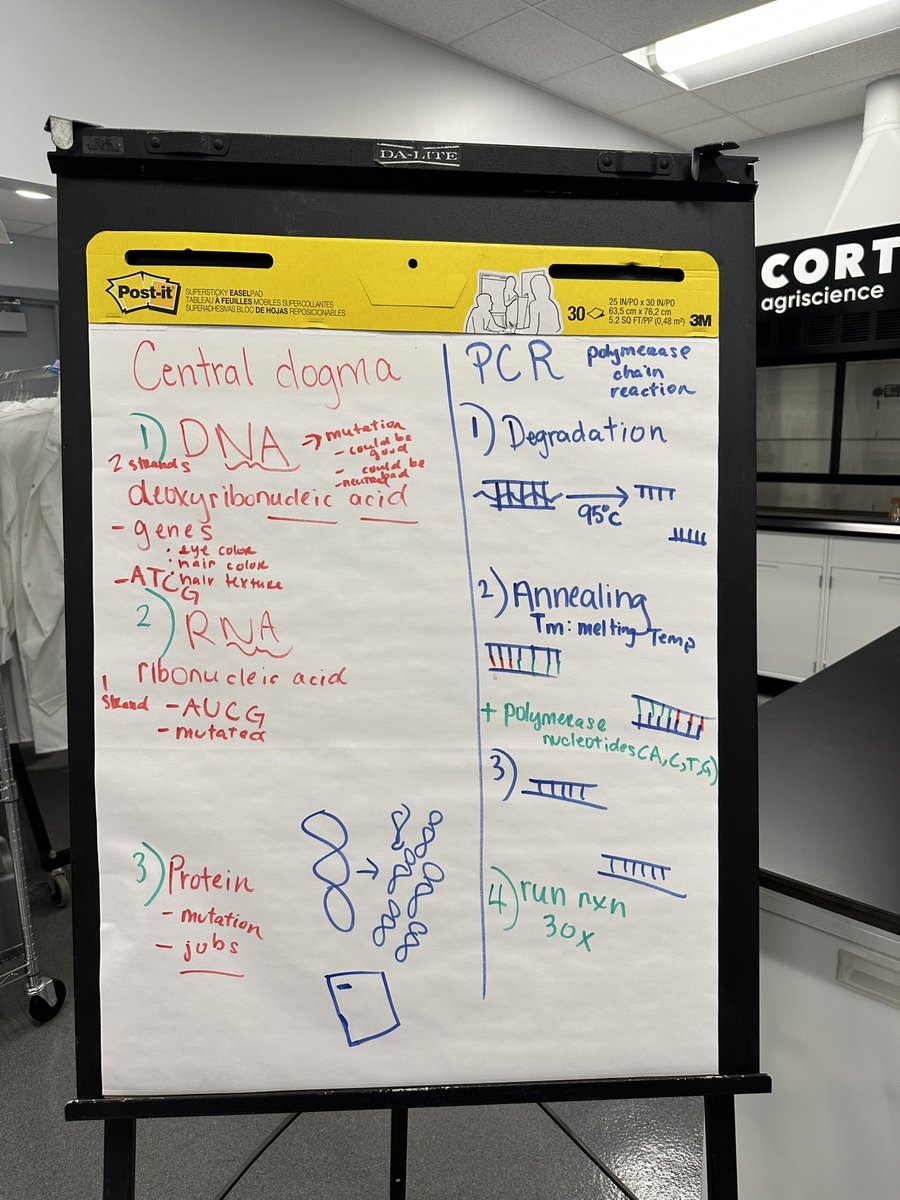 DA-LITE
Post-it
SUPERSTICKY EASELPAD
TABLEAU À FEUILLES MOBILES SUPERCOLLANTES
SUPERADHESIVAS BLOC DE HOJAS REPOSICIONABLES
30
25 IN/PO x 30 IN/PO
63,5 cm x 76,2 cm
5.2 SQ FT/PI² (0,48 m²)
3M
CORT
agriscience
Central dogma
1) DNA → mutation
- could be good
- could be bad
- neutral
2 strands
deoxyribonucleic acid
- genes
• eye color
• hair color
• hair texture
- ATCG
2) RNA
ribonucleic acid
1 strand
- AUCG
- mutated
3) Protein
- mutation
- jobs
PCR
polymerase
chain
reaction
1) Degradation
95°C
2) Annealing
Tm: melting Temp
+ polymerase
nucleotides (A,C,T,G)
3)
4) run rxn
30x